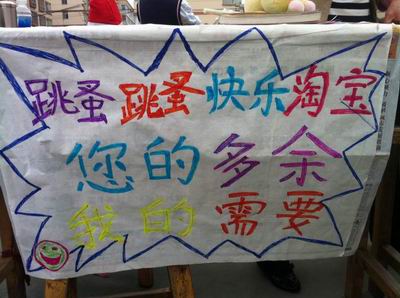 跳蚤跳蚤快乐淘宝
您的多余
我的需要